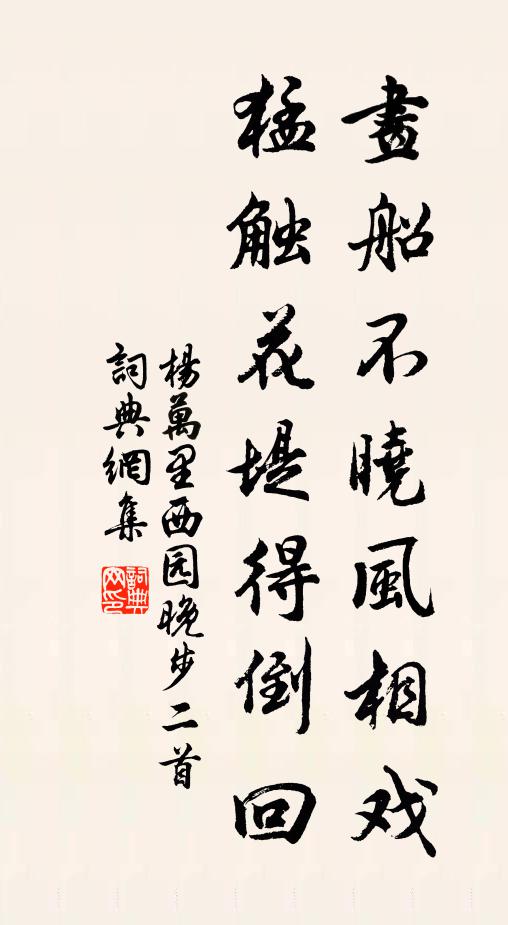 畫船不曉風相戏
猛触花堤得倒回
楊萬里西园晚步二首
詞典網集
詞典网印